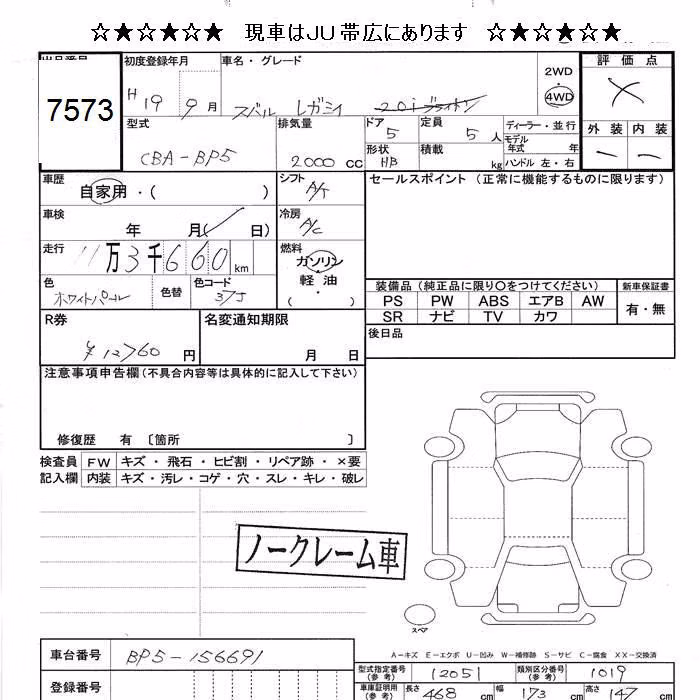 ☆★☆★☆★ 現車はJU帯広にあります ☆★☆★☆★
7573
初度登録年月
H 19 9月
車名・グレード
スバル レガシィ
2WD
4WD
評価点
外装 内装
型式
CBA-BP5
排気量
2000 cc
ドア 5
形状 HB
定員 5 人
積載 kg
ディーラー・並行
モデル年式 年
ハンドル 左・右
車歴
自家用・( )
シフト A/T
セールスポイント (正常に機能するものに限ります)
車検
年 月( 日)
冷房 A/C
走行
11万3千660km
燃料
ガソリン
軽油
( )
色
ホワイトパール
色替
色コード
37J
装備品 (純正品に限り〇をつけてください)
新車保証書
PS PW ABS エアB AW
SR ナビ TV カワ
有・無
R券
¥12760 円
名変通知期限
月 日
後日品
注意事項申告欄 (不具合内容等は具体的に記入して下さい)
修復歴 有 〔箇所 〕
検査員記入欄
FW キズ・飛石・ヒビ割・リペア跡・×要
内装 キズ・汚レ・コゲ・穴・スレ・キレ・破レ
ノークレーム車
スペア
A-キズ E-エクボ U-凹み W-補修跡 S-サビ C-腐食 XX-交換済
車台番号
BP5-156691
型式指定番号 (参考) 12051
類別区分番号 (参考) 1019
登録番号
車庫証明用 (参考) 長さ 468 cm 幅 173 cm 高さ 147 cm